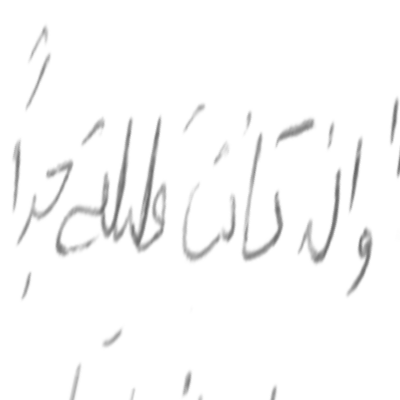 وان كانت قليلة جداً